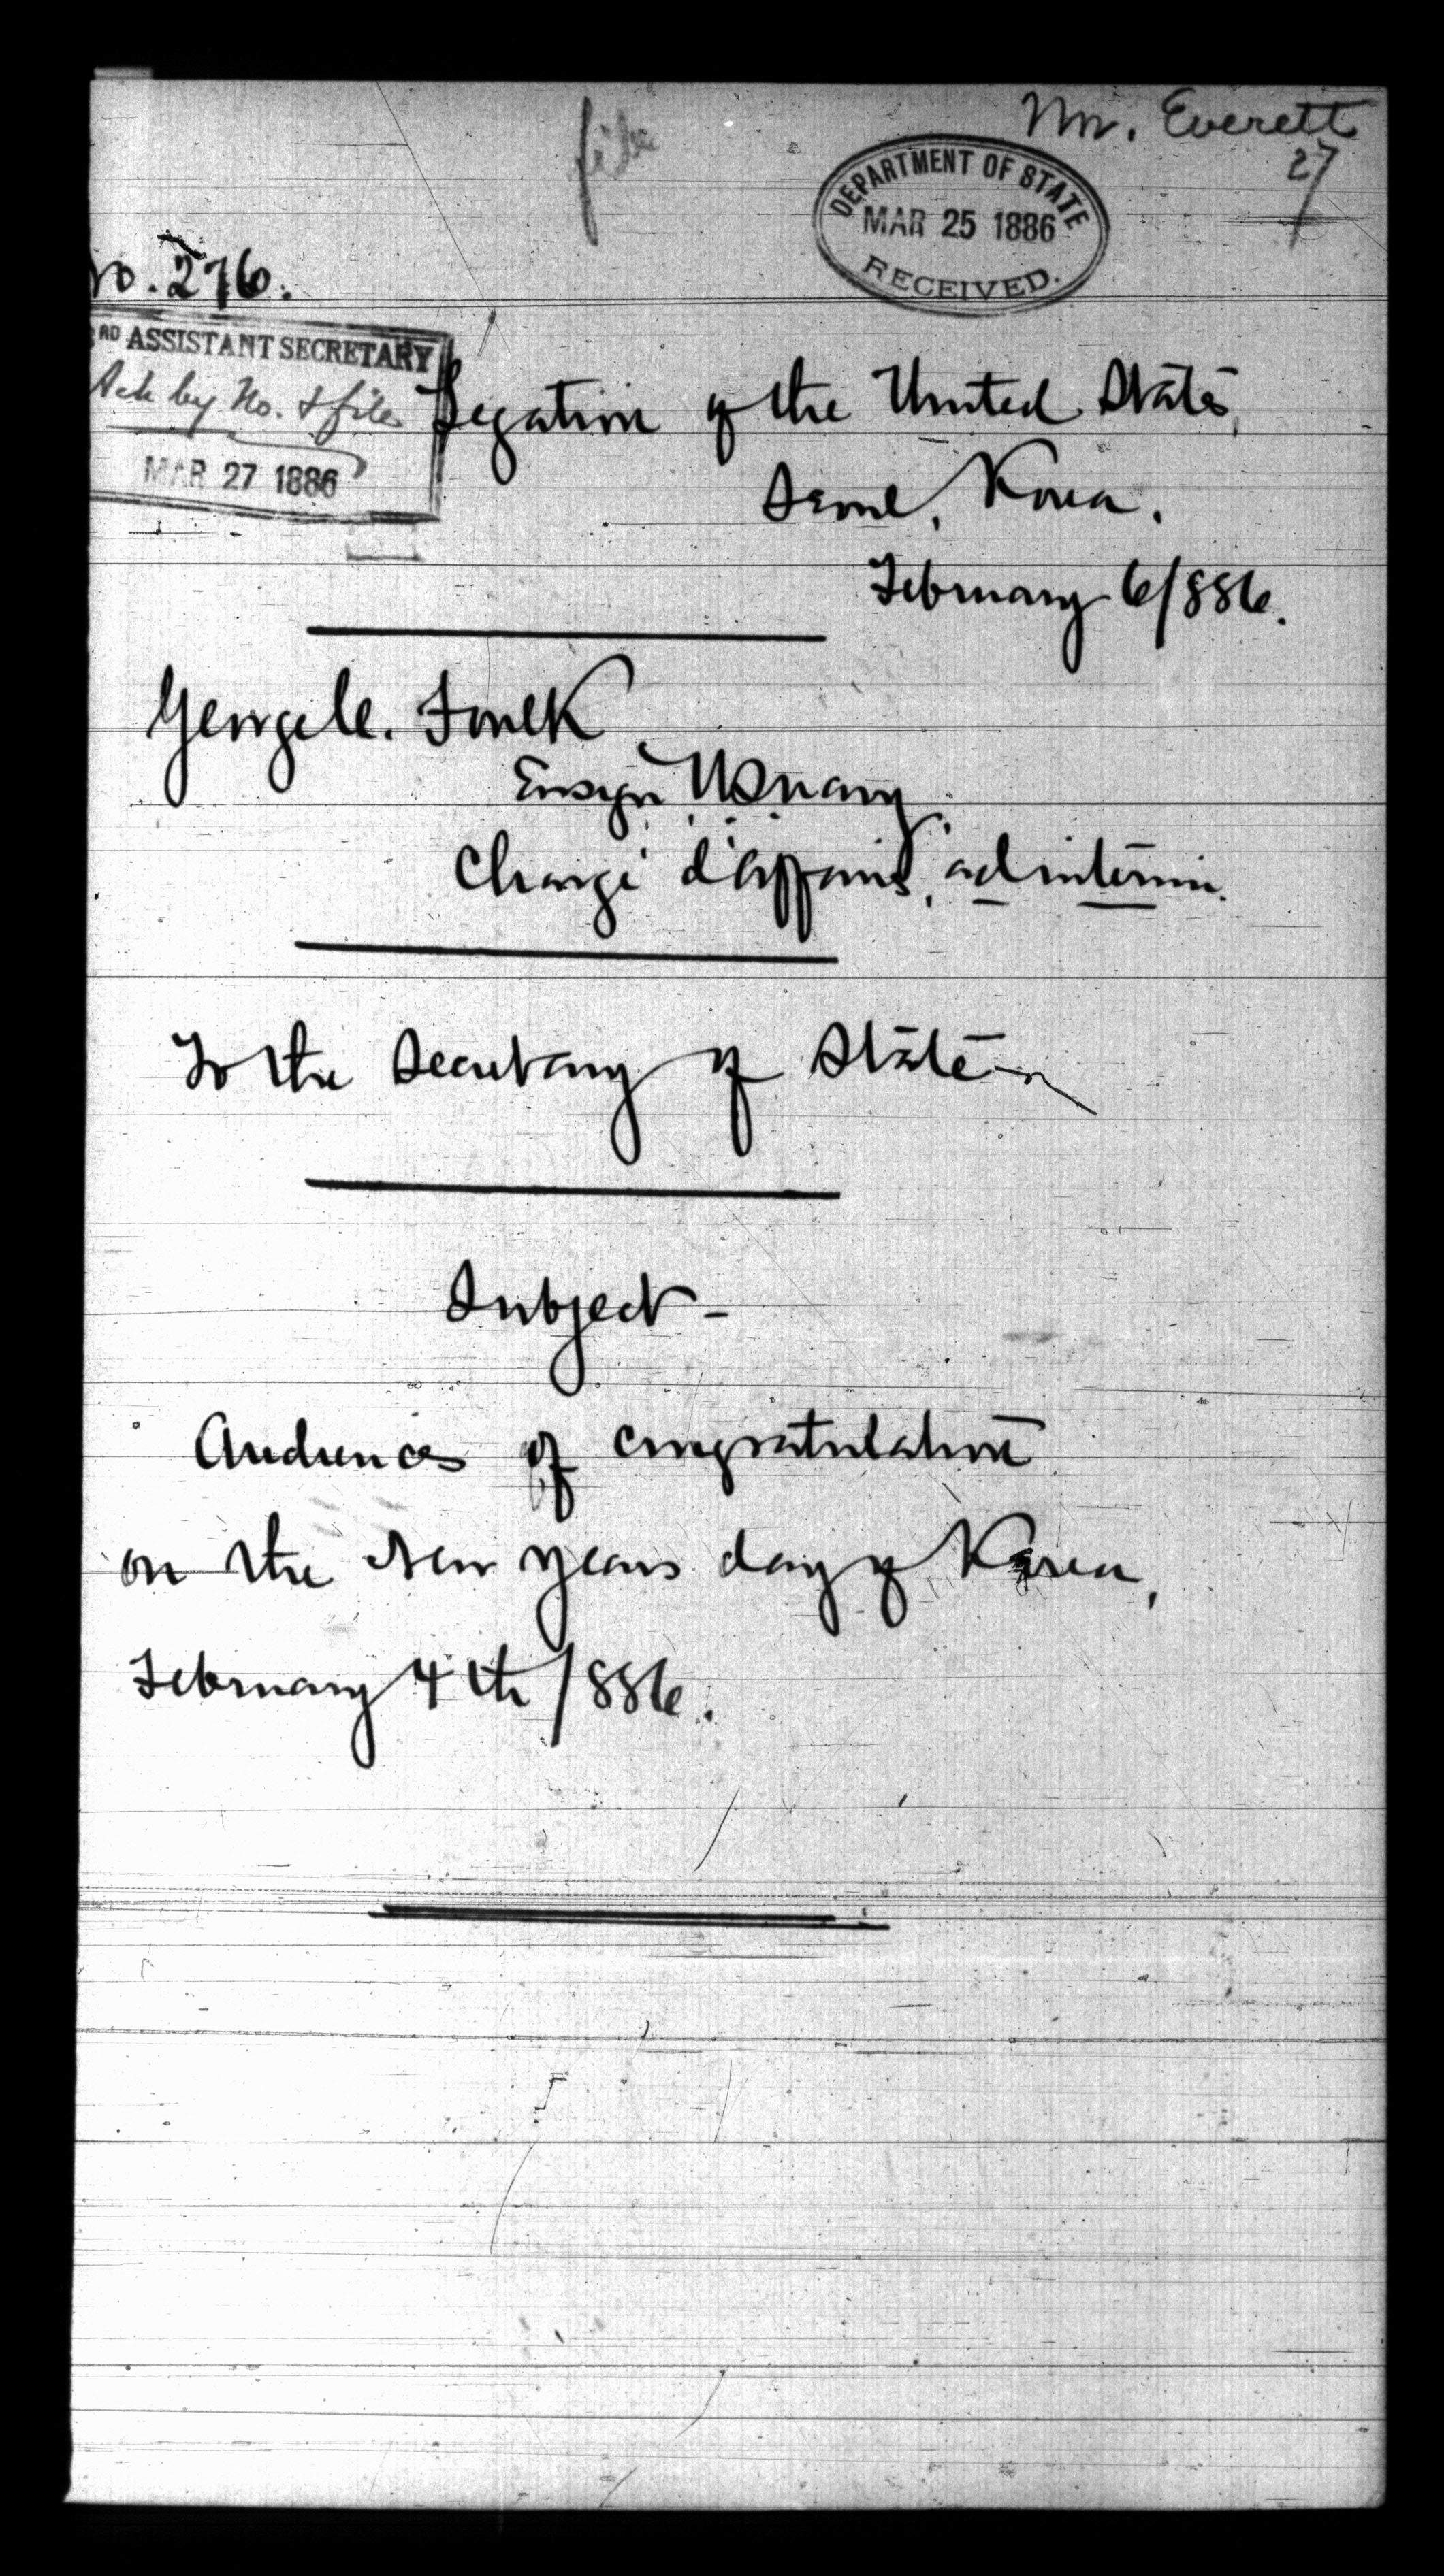 Mr. Everett
27
file
DEPARTMENT OF STATE
MAR 25 1886
RECEIVED.
No. 276.
3RD ASSISTANT SECRETARY
Ack by No. & file
MAR 27 1886
Legation of the United States,
Seoul, Korea.
February 6/886.
George C. Foulk
Ensign U.S. Navy,
Chargé d'Affaires, ad interim.
To the Secretary of State
Subject -
Audiences of congratulation
on the New Years day of Korea,
February 4th 1886.